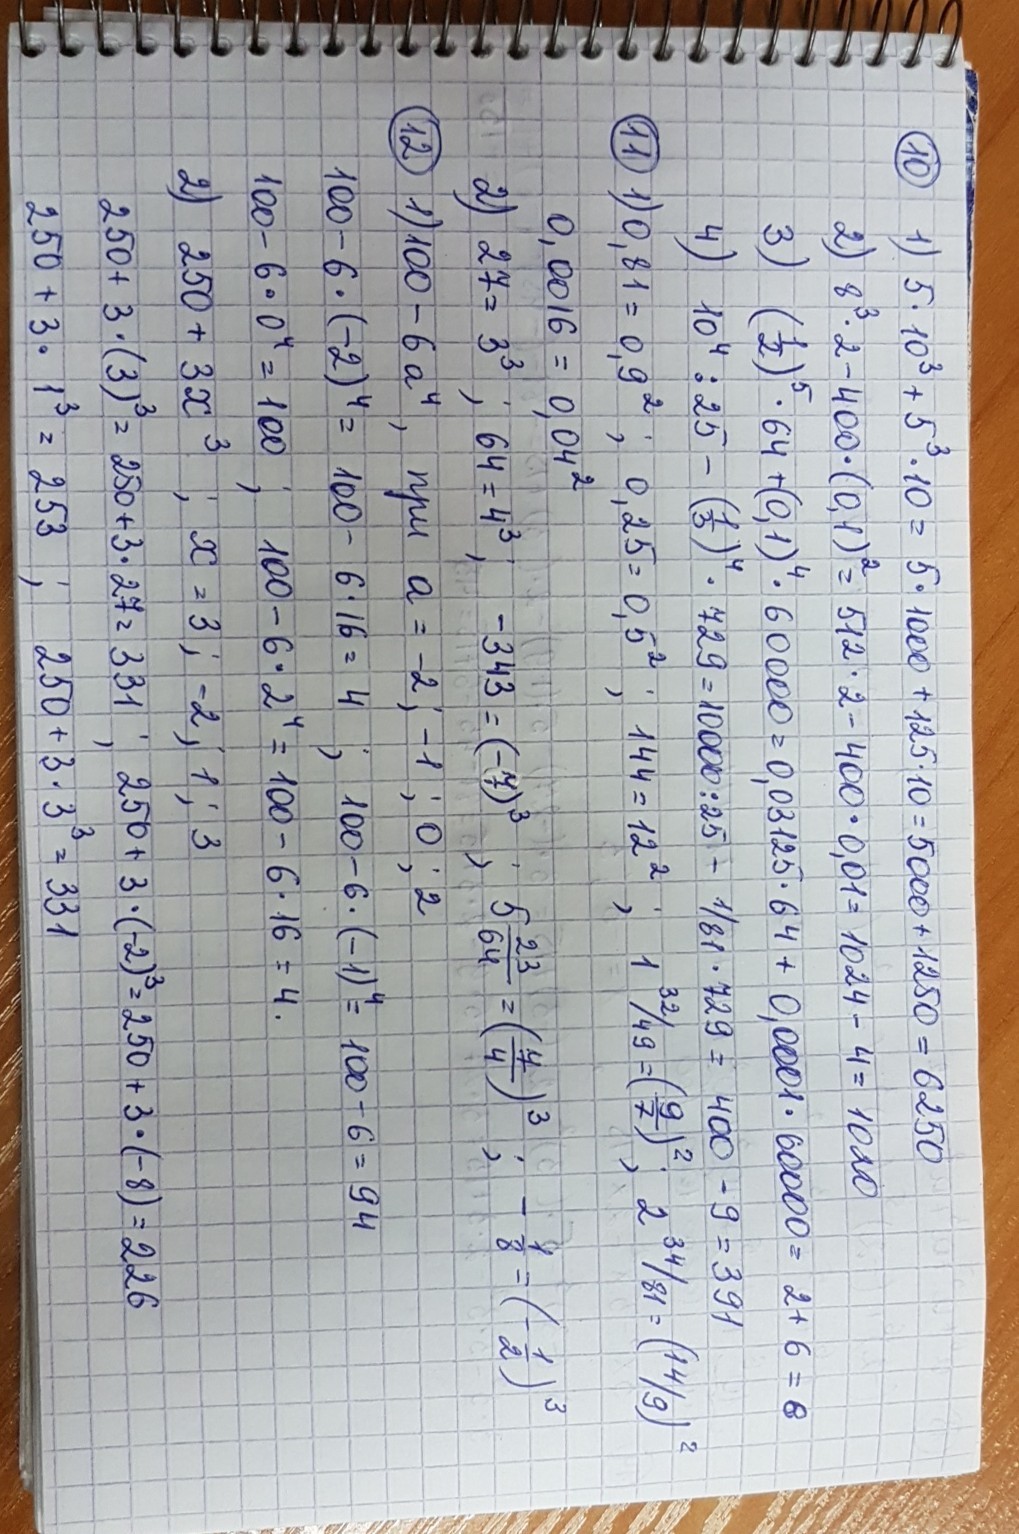 10 1) 5·10³ + 5³·10 = 5·1000 + 125·10 = 5000 + 1250 = 6250
2) 8³·2 - 400·(0,1)² = 512·2 - 400·0,01 = 1024 - 4 = 1020
3) (1/2)⁵·64 + (0,1)⁴·60000 = 0,03125·64 + 0,0001·60000 = 2 + 6 = 8
4) 10⁴ : 25 - (1/3)⁴·729 = 10000 : 25 - 1/81·729 = 400 - 9 = 391
11 1) 0,81 = 0,9²; 0,25 = 0,5²; 144 = 12²; 1 32/49 = (9/7)²; 2 34/81 = (14/9)²
0,0016 = 0,04²
2) 27 = 3³; 64 = 4³; -343 = (-7)³; 5 23/64 = (7/4)³; -1/8 = (-1/2)³
12 1) 100 - 6a⁴, при a = -2; -1; 0; 2
100 - 6·(-2)⁴ = 100 - 6·16 = 4; 100 - 6·(-1)⁴ = 100 - 6 = 94
100 - 6·0⁴ = 100; 100 - 6·2⁴ = 100 - 6·16 = 4.
2) 250 + 3x³; x = 3; -2; 1; 3
250 + 3·(3)³ = 250 + 3·27 = 331; 250 + 3·(-2)³ = 250 + 3·(-8) = 226
250 + 3·1³ = 253; 250 + 3·3³ = 331